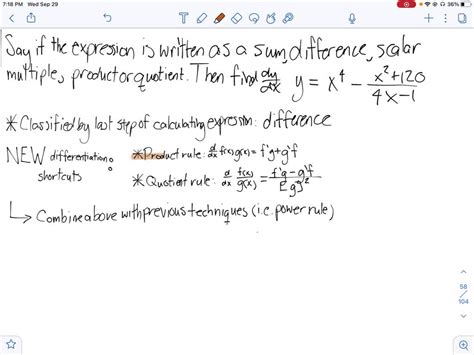 7:18 PM Wed Sep 29
36%
Say if the expression is written as a sum, difference, scalar
multiple, product or quotient. Then find dy/dx y = x^4 - (x^2+120)/(4x-1)
* Classified by last step of calculating expression: difference
NEW differentiation shortcuts:
* Product rule: d/dx f(x)g(x) = f'g+g'f
* Quotient rule: d/dx f(x)/g(x) = (f'g-g'f)/[g]^2
↳ Combine above with previous techniques (i.e. power rule)
58
104